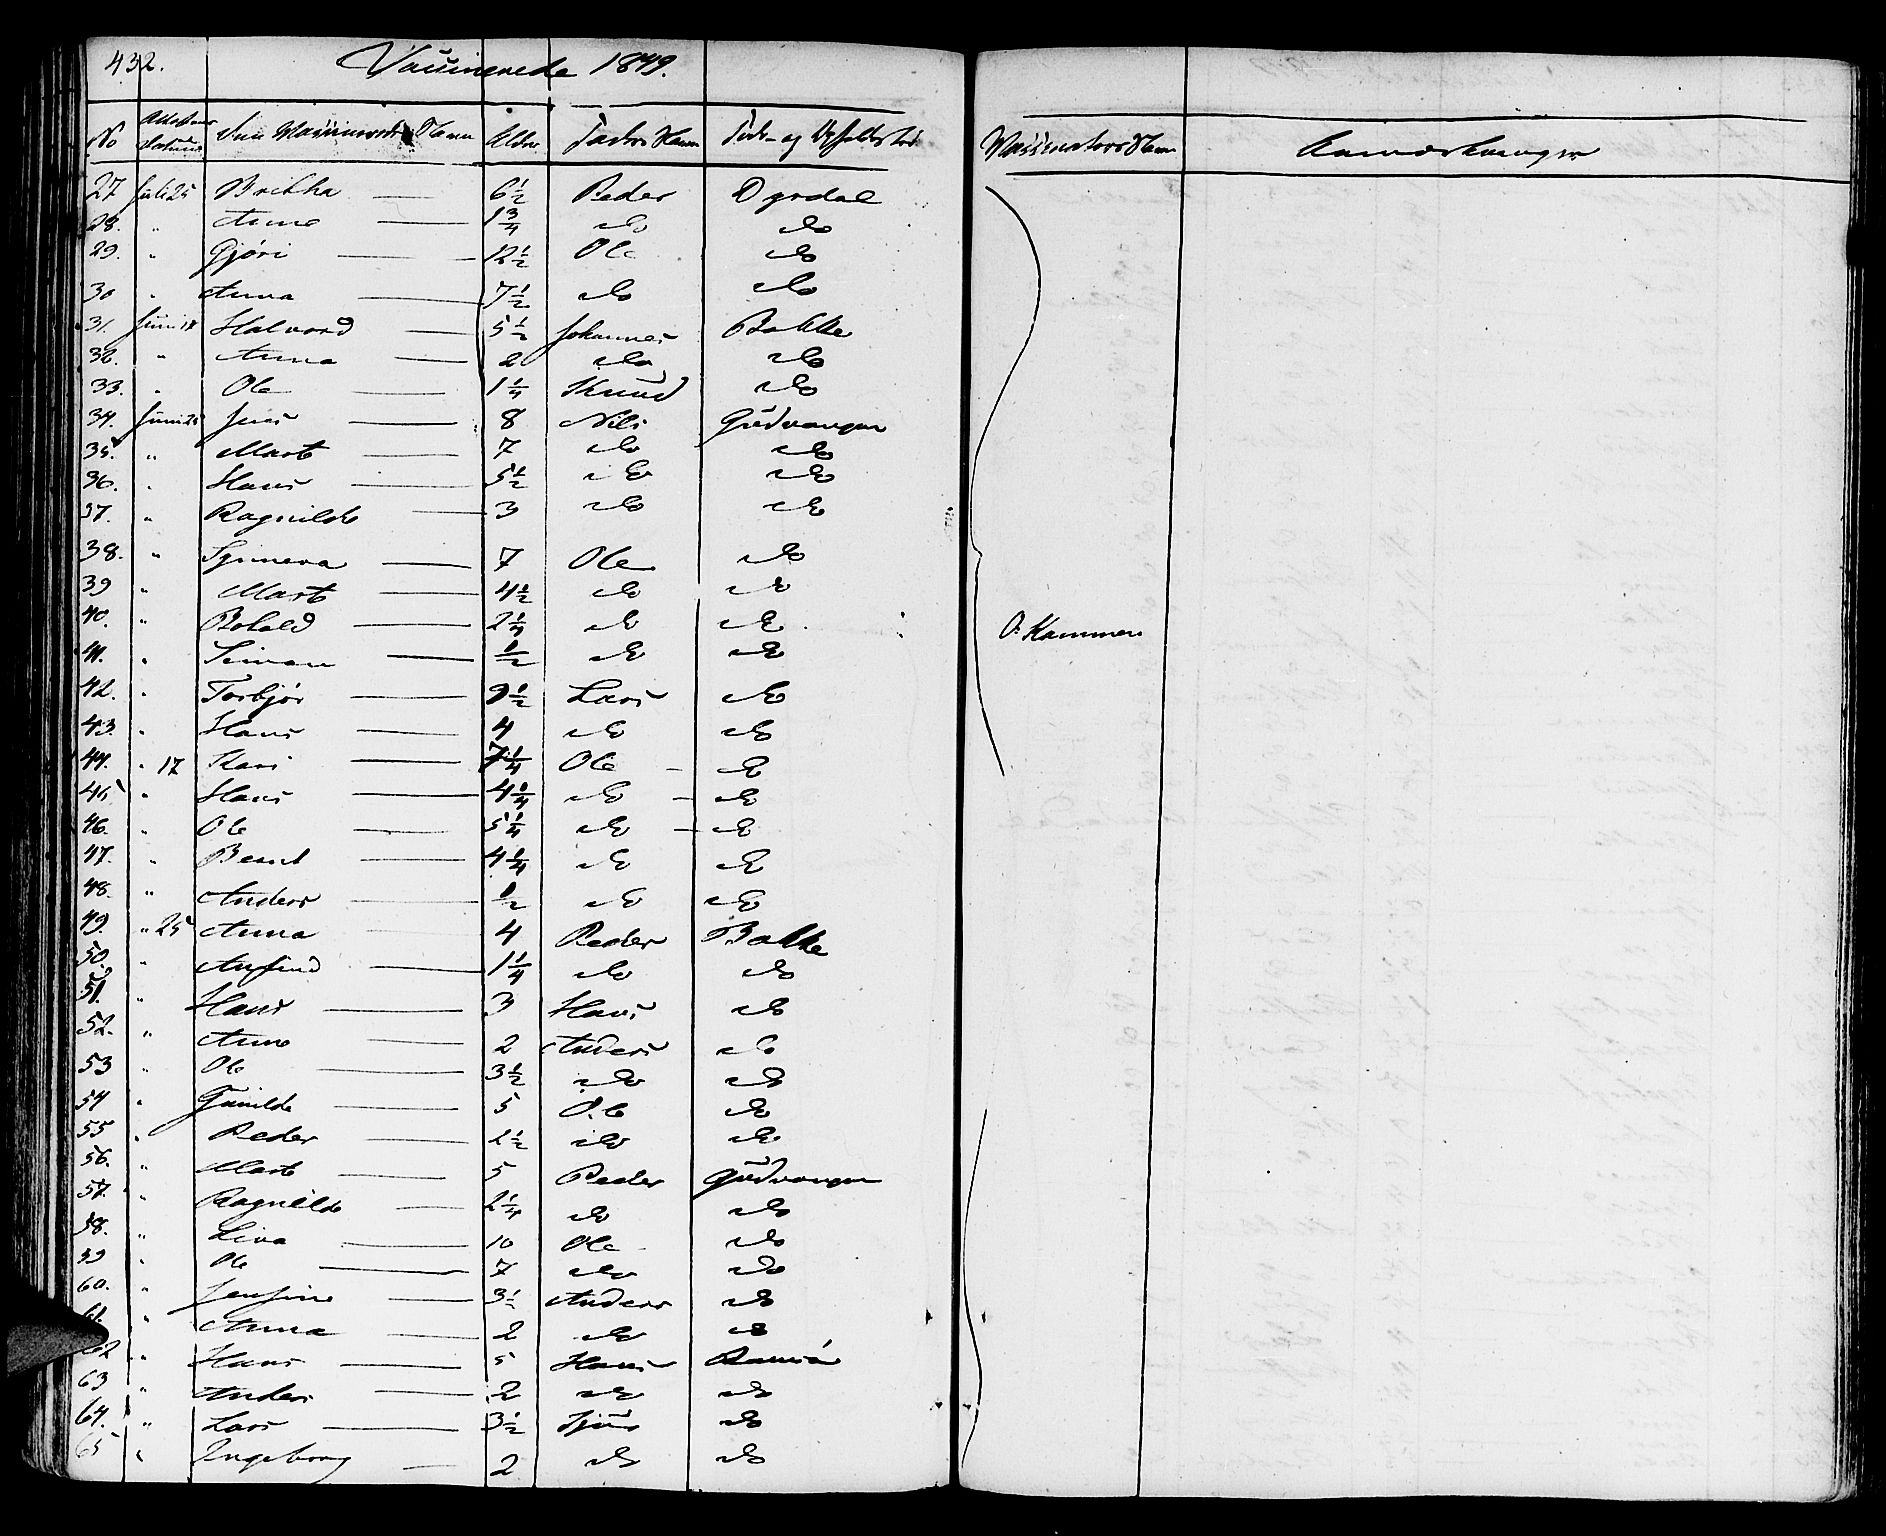 432. Vaccinerede 1849.
No Attestens Datum Den Vaccineredes Navn Alder Faders Navn Føde- og Opholds Sted Vaccinateurs Navn Anmærkninger
27 Juli 25 Britha 6½ Peder Dyrdal
28. " Anne 1¾ do do
29. " Gjøri 12½ Ole do
30 " Anna 7½ do do
31. Juni 18 Halvord 5½ Johannes Bakke
32. " Anna 2 do do
33. " Ole 1¼ Knud do
34. Juni 25 Jens 8 Nils Gudvangen
35. " Marte 7 do do
36. " Hans 5½ do do
37. " Ragnilde 3 do do
38. " Synneva 7 Ole do
39 " Marte 4½ do do
40. " Botold 2¼ do do O. Kammen
41. " Simon ½ do do
42. " Torbjør 9½ Lars do
43. " Hans 4 do do
44. " 17 Kari 7¼ Ole do
45 " Hans 4¼ do do
46. " Ole 5¼ do do
47. " Berul 4¼ do do
48. " Anders ½ do do
49. " 25 Anna 4 Peder Bakke
50. " Anfind 1¼ do do
51. " Hans 3 Hans do
52. " Anne 2 Anders do
53 " Ole 3½ do do
54 " Gunilde 5 Ole do
55 " Peder 2½ do do
56. " Marte 5 Peder Gudvangen
57. " Ragnilde 2¼ do do
58. " Liva 10 Ole do
59 " Ole 7 do do
60. " Jensine 3½ Anders do
61. " Anna 2 do do
62 " Hans 5 Hans Ramsø
63 " Anders 2 do do
64. " Lars 3½ Sjur do
65 " Ingeborg 2 do do